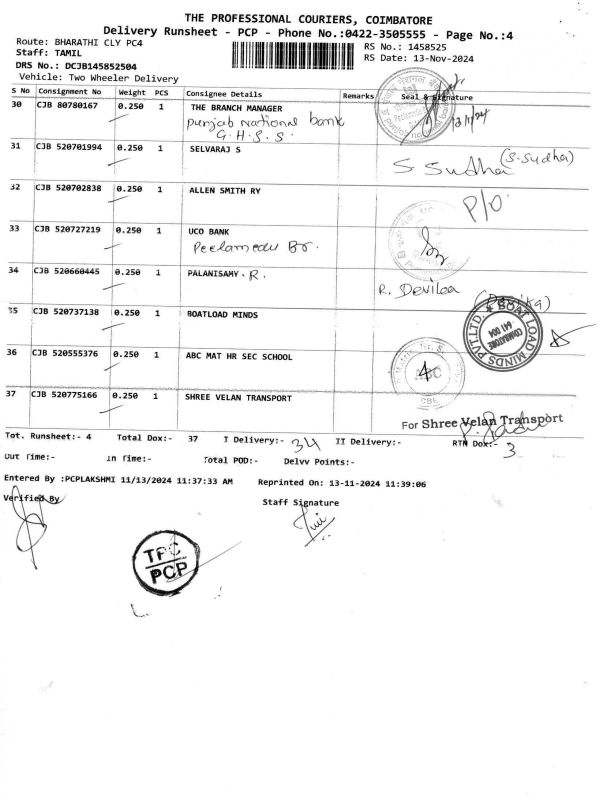 THE PROFESSIONAL COURIERS, COIMBATORE
Delivery Runsheet - PCP - Phone No.:0422-3505555 - Page No.:4
Route: BHARATHI CLY PC4
RS No.: 1458525
Staff: TAMIL
RS Date: 13-Nov-2024
DRS No.: DCJB145852504
Vehicle: Two Wheeler Delivery
S No Consignment No Weight PCS Consignee Details Remarks Seal & Signature
30 CJB 80780167 0.250 1 THE BRANCH MANAGER
punjab national bank
G.H.S.S.
13/11/24
31 CJB 520701994 0.250 1 SELVARAJ S
S. Sudha (S.Sudha)
32 CJB 520702838 0.250 1 ALLEN SMITH RY
P/O
33 CJB 520727219 0.250 1 UCO BANK
Peelamedu Br.
34 CJB 520660445 0.250 1 PALANISAMY . R.
R. Devika (Devika)
35 CJB 520737138 0.250 1 BOATLOAD MINDS
BOAT LOAD MINDS PVT.LTD.
COIMBATORE
641 004
36 CJB 520555376 0.250 1 ABC MAT HR SEC SCHOOL
ABC
CBE
37 CJB 520775166 0.250 1 SHREE VELAN TRANSPORT
For Shree Velan Transport
Tot. Runsheet:- 4 Total Dox:- 37 I Delivery:- 34 II Delivery:- RTN Dox:- 3
Out Time:- In Time:- Total POD:- Delvv Points:-
Entered By :PCPLAKSHMI 11/13/2024 11:37:33 AM Reprinted On: 13-11-2024 11:39:06
Verified By Staff Signature
TPC
PCP